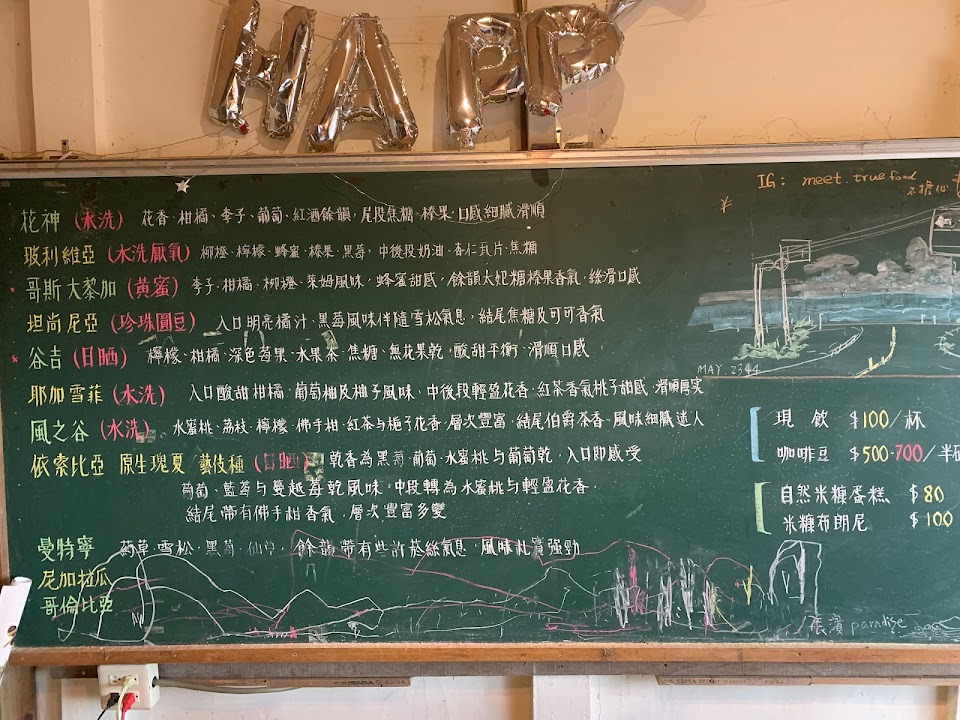 HAPPY
IG: meet.truefood
不擔心
花神 (水洗) 花香、柑橘、李子、葡萄、紅酒餘韻,尾段焦糖、榛果、口感細膩滑順
玻利維亞 (水洗厭氧) 柳橙、檸檬、蜂蜜、榛果、黑莓,中後段奶油、杏仁瓦片、焦糖
哥斯大黎加 (黃蜜) 李子、柑橘、柳橙、萊姆風味,蜂蜜甜感,餘韻太妃糖榛果香氣,絲滑口感
坦尚尼亞 (珍珠圓豆) 入口明亮橘汁、黑莓風味伴隨雪松氣息,結尾焦糖及可可香氣
谷吉 (日晒) 檸檬、柑橘、深色莓果、水果茶、焦糖、無花果乾,酸甜平衡、滑順口感
MAY. 2344
耶加雪菲 (水洗) 入口酸甜柑橘、葡萄柚及柚子風味,中後段輕盈花香、紅茶香氣桃子甜感,滑順厚實
風之谷 (水洗) 水蜜桃、荔枝、檸檬、佛手柑、紅茶与梔子花香,層次豐富,結尾伯爵茶香,風味細膩迷人
依索比亞 原生瑰夏 藝伎種 (日晒) 乾香為黑莓、葡萄、水蜜桃与葡萄乾,入口即感受
葡萄、藍莓与蔓越莓乾風味,中段轉為水蜜桃与輕盈花香,
結尾帶有佛手柑香氣,層次豐富多變
曼特寧 藥草、雪松、黑莓、仙草,餘韻帶有些許菸絲氣息,風味札實強勁
尼加拉瓜
哥倫比亞
現飲 $100/杯
咖啡豆 $500-700/半
自然米糠蛋糕 $80
米糠布朗尼 $100
張濱 paradise